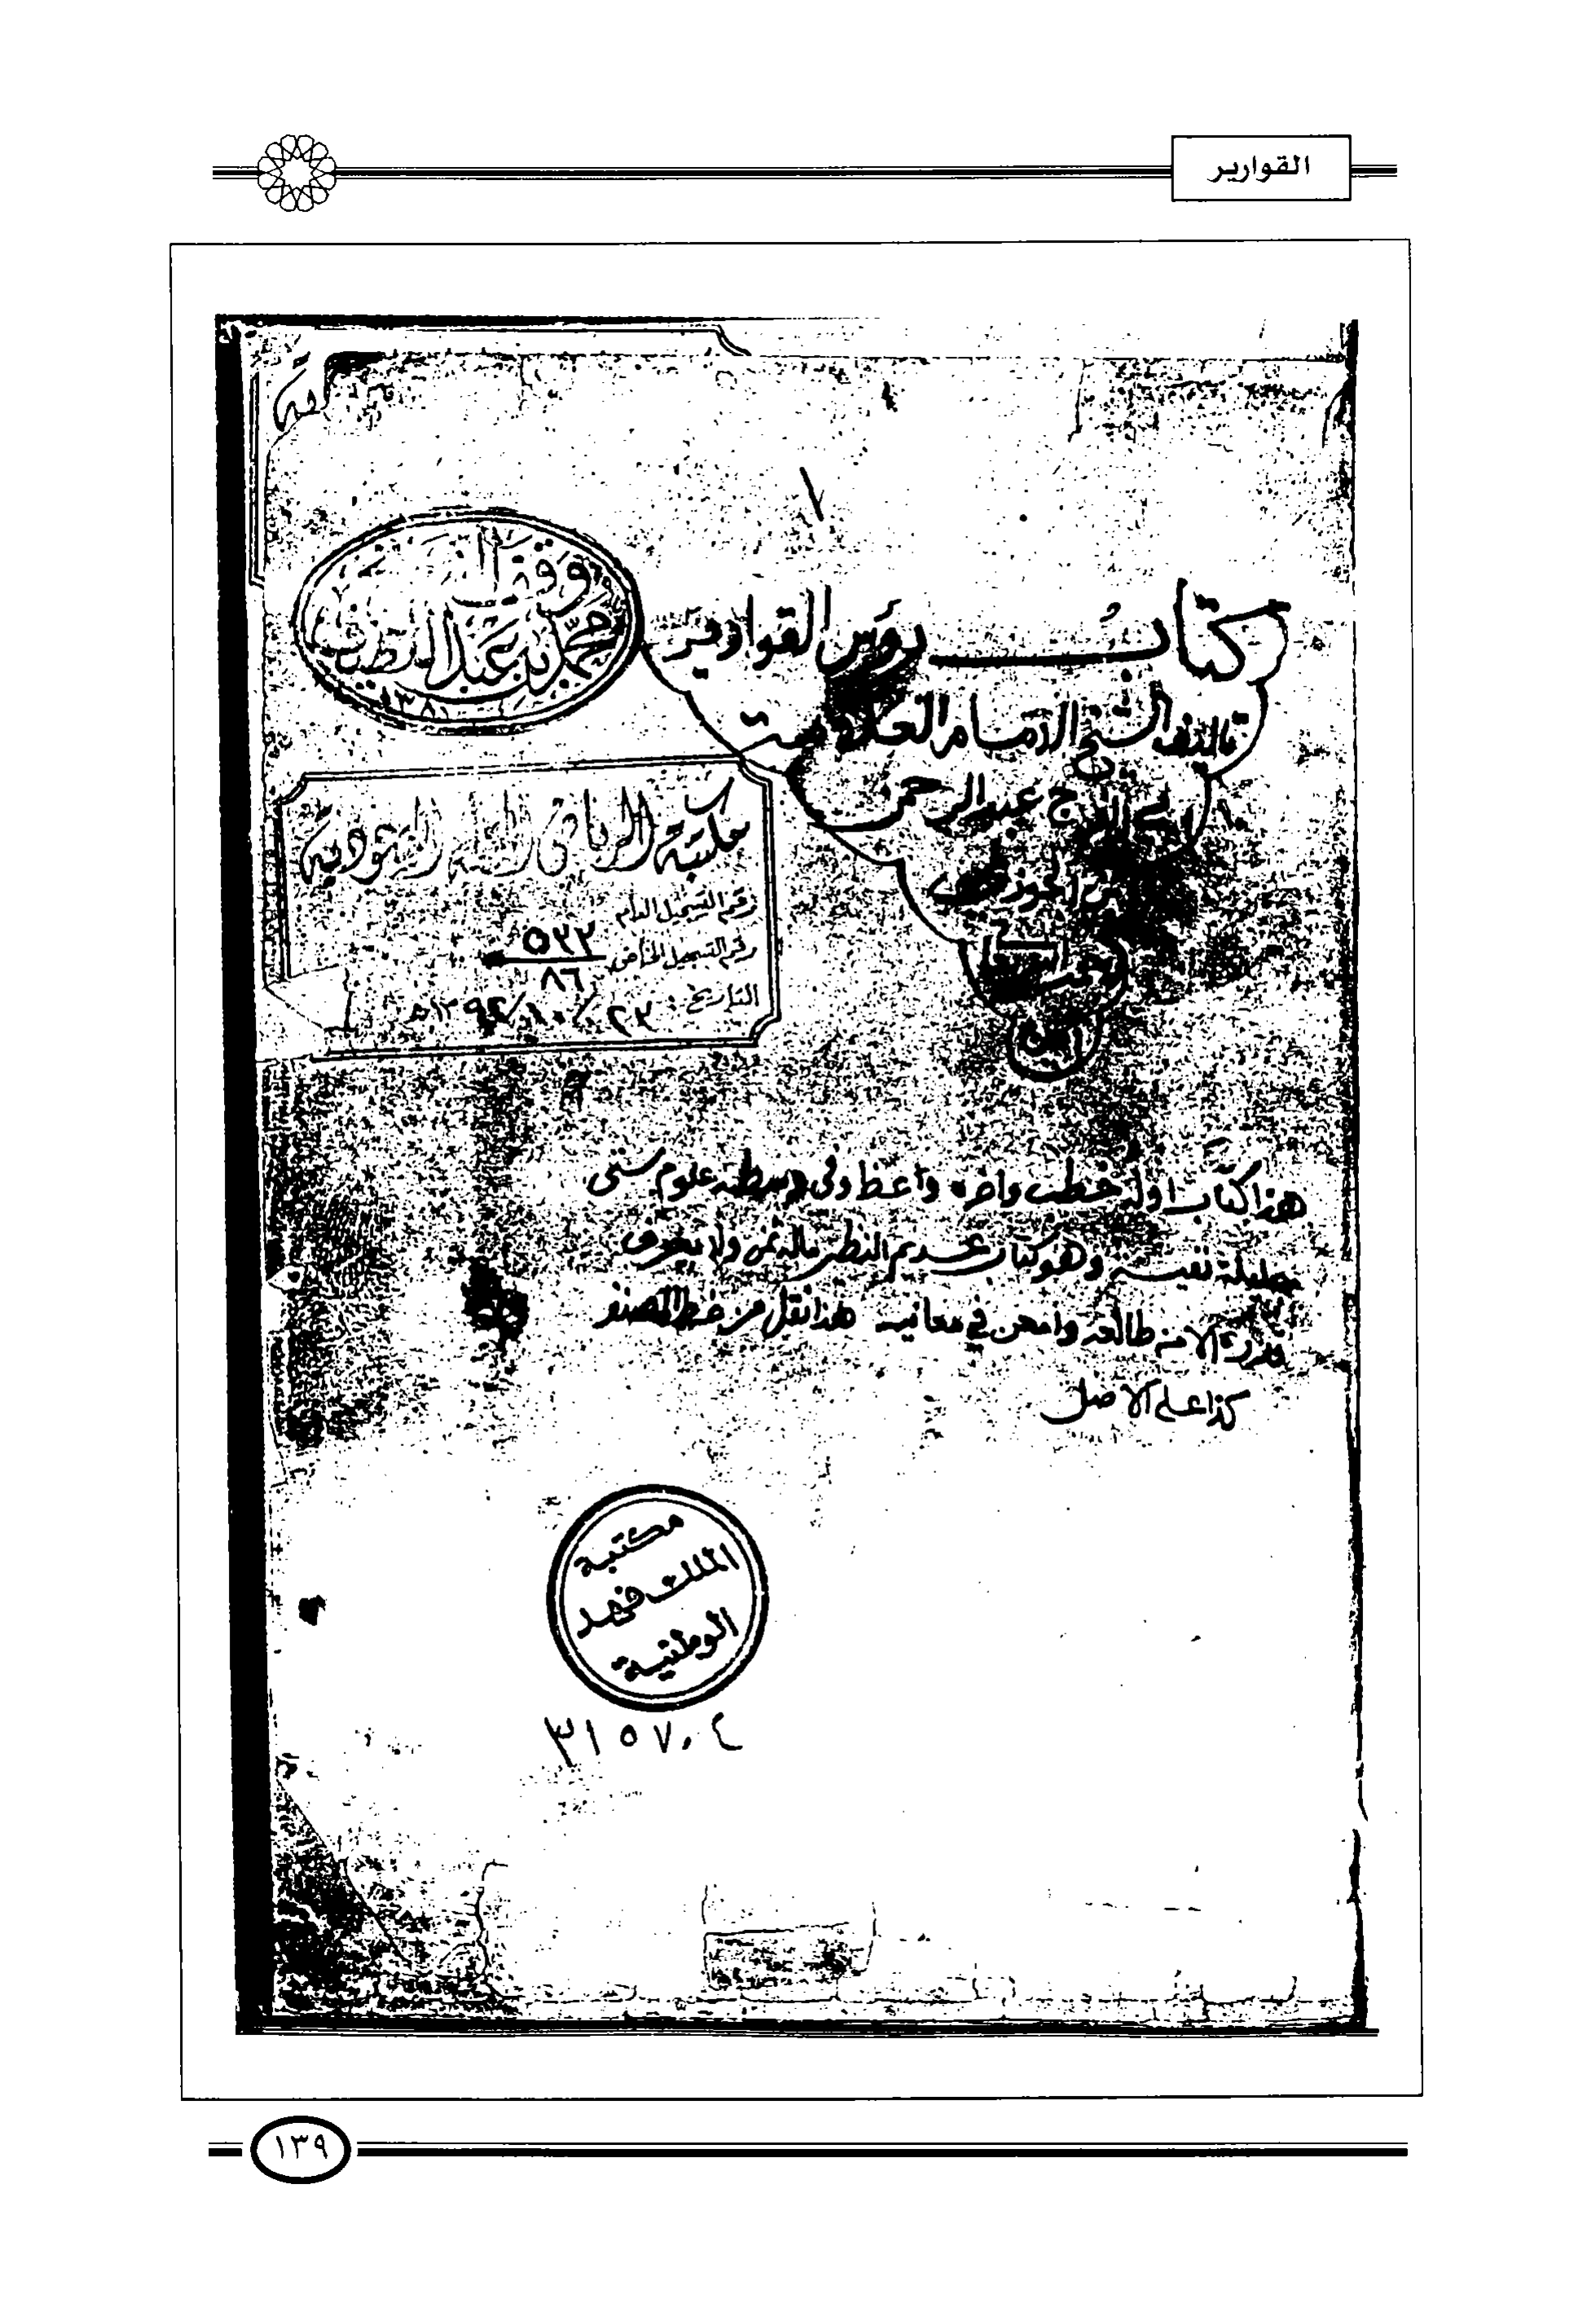 القوارير
١
كتاب رؤس القوارير
تاليف الشيخ الامام العلامة
ابي الفرج عبد الرحمن
بن الجوزي
امين
وقف
محمد بن عبد اللطيف
١٣٨١
مكتبة الرياض العامة السعودية
رقم التسجيل العام
٥٢٢
رقم التسجيل الخاص
٨٦
التاريخ: ٢٣/١٠/١٣٩٤هـ
هذا كتاب اوله خطب واخره واعظ وفي وسطه علوم ستى
جليلة نفيسه وهو كتاب عديم النظير ماله ثمن ولا يعرف
قدره الا من طالعه وامعن في معانيه هذا نقل من خط المصنف
كذا على الاصل
مكتبة
الملك فهد
الوطنية
٣١٥٧٠٤
١٣٩